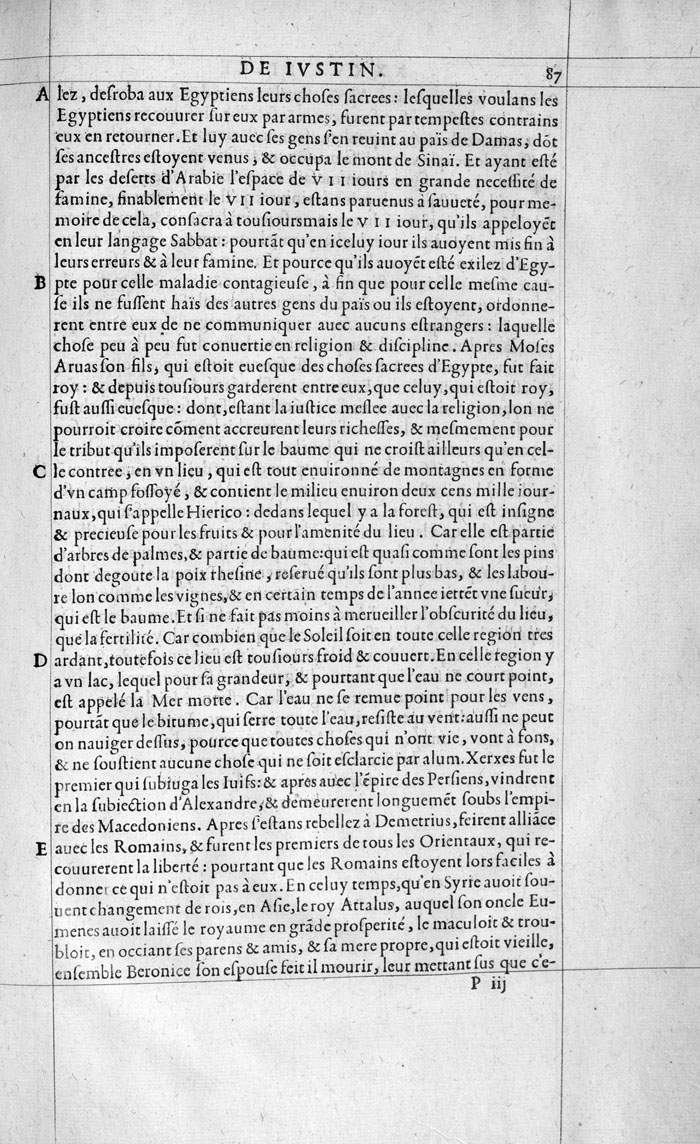 DE IVSTIN. 87
A lez, desroba aux Egyptiens leurs choses sacrees: lesquelles voulans les
Egyptiens recouurer sur eux par armes, furent par tempestes contrains
eux en retourner. Et luy auec ses gens s'en reuint au païs de Damas, dõt
ses ancestres estoyent venus, & occupa le mont de Sinaï. Et ayant esté
par les deserts d'Arabie l'espace de VII iours en grande necessité de
famine, finablement le VII iour, estans paruenus à sauueté, pour me-
moire de cela, consacra à tousioursmais le VII iour, qu'ils appeloyẽt
en leur langage Sabbat: pourtãt qu'en iceluy iour ils auoyent mis fin à
leurs erreurs & à leur famine. Et pource qu'ils auoyẽt esté exilez d'Egy-
B pte pour celle maladie contagieuse, à fin que pour celle mesme cau-
se ils ne fussent haïs des autres gens du païs ou ils estoyent, ordonne-
rent entre eux de ne communiquer auec aucuns estrangers: laquelle
chose peu à peu fut conuertie en religion & discipline. Apres Moses
Aruas son fils, qui estoit euesque des choses sacrees d'Egypte, fut fait
roy: & depuis tousiours garderent entre eux, que celuy, qui estoit roy,
fust aussi euesque: dont, estant la iustice meslee auec la religion, lon ne
pourroit croire cõment accreurent leurs richesses, & mesmement pour
le tribut qu'ils imposerent sur le baume qui ne croist ailleurs qu'en cel-
C le contree, en vn lieu, qui est tout enuironné de montagnes en forme
d'vn camp fossoyé, & contient le milieu enuiron deux cens mille iour-
naux, qui s'appelle Hierico: dedans lequel y a la forest, qui est insigne
& precieuse pour les fruits & pour l'amenité du lieu. Car elle est partie
d'arbres de palmes, & partie de baume: qui est quasi comme sont les pins
dont degoute la poix rhesine, reserué qu'ils sont plus bas, & les labou-
re lon comme les vignes, & en certain temps de l'annee iettẽt vne sueur,
qui est le baume. Et si ne fait pas moins à merueiller l'obscurité du lieu,
que la fertilité. Car combien que le Soleil soit en toute celle region tres
D ardant, toutefois ce lieu est tousiours froid & couuert. En celle region y
a vn lac, lequel pour sa grandeur, & pourtant que l'eau ne court point,
est appelé la Mer morte. Car l'eau ne se remue point pour les vens,
pourtãt que le bitume, qui serre toute l'eau, resiste au vent: aussi ne peut
on nauiger dessus, pource que toutes choses qui n'ont vie, vont à fons,
& ne soustient aucune chose qui ne soit esclarcie par alum. Xerxes fut le
premier qui subiuga les Iuifs: & apres auec l'épire des Persiens, vindrent
en la subiection d'Alexandre, & demeurerent longuemẽt soubs l'empi-
re des Macedoniens. Apres s'estans rebellez à Demetrius, feirent alliãce
E auec les Romains, & furent les premiers de tous les Orientaux, qui re-
couurerent la liberté: pourtant que les Romains estoyent lors faciles à
donner ce qui n'estoit pas à eux. En celuy temps, qu'en Syrie auoit sou-
uent changement de rois, en Asie, le roy Attalus, auquel son oncle Eu-
menes auoit laissé le royaume en grãde prosperité, le maculoit & trou-
bloit, en occiant ses parens & amis, & sa mere propre, qui estoit vieille,
ensemble Beronice son espouse feit il mourir, leur mettant sus que c'e-
P iij